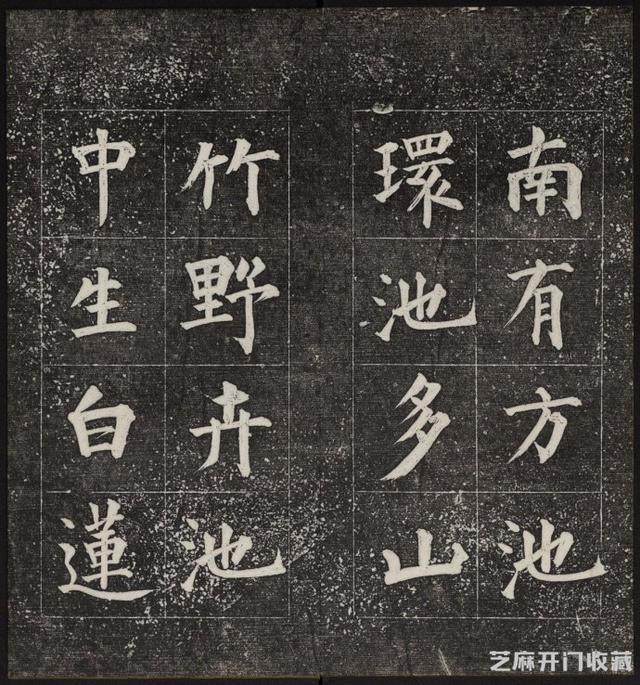 南有方池
環池多山
竹野卉池
中生白蓮
芝麻开门收藏